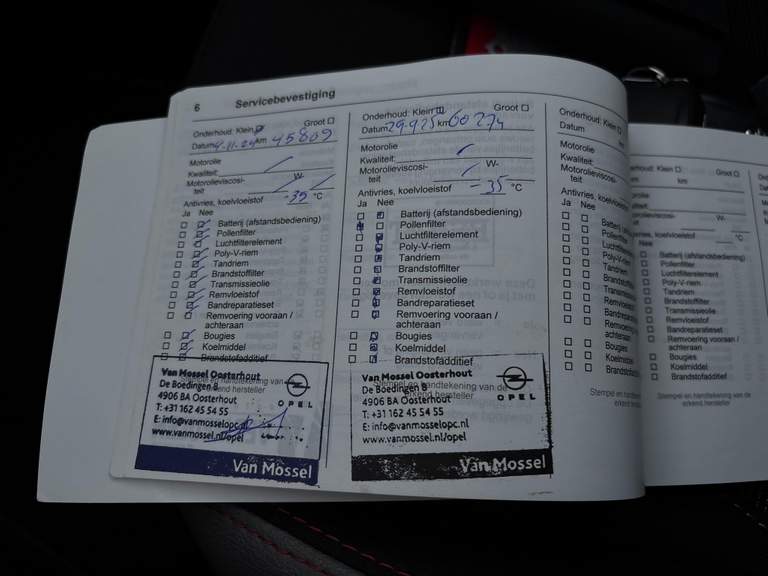 6 Servicebevestiging
Onderhoud: Klein Groot
Datum 4.11.24 km 45809
Motorolie
Kwaliteit:
Motorolieviscosi- W-
teit
Antivries, koelvloeistof -35 °C
Ja Nee
Batterij (afstandsbediening)
Pollenfilter
Luchtfilterelement
Poly-V-riem
Tandriem
Brandstoffilter
Transmissieolie
Remvloeistof
Bandreparatieset
Remvoering vooraan /
achteraan
Bougies
Koelmiddel
Brandstofadditief
Van Mossel Oosterhout
De Boedingen 8
4906 BA Oosterhout
T: +31 162 45 54 55
E: info@vanmosselopc.nl
www.vanmossel.nl/opel
OPEL
Van Mossel
Onderhoud: Klein Groot
Datum 29.9.25 km 60274
Motorolie
Kwaliteit:
Motorolieviscosi- W-
teit
Antivries, koelvloeistof -35 °C
Ja Nee
Batterij (afstandsbediening)
Pollenfilter
Luchtfilterelement
Poly-V-riem
Tandriem
Brandstoffilter
Transmissieolie
Remvloeistof
Bandreparatieset
Remvoering vooraan /
achteraan
Bougies
Koelmiddel
Brandstofadditief
Van Mossel Oosterhout
Stempel en handtekening van de
De Boedingen 8
erkend hersteller
4906 BA Oosterhout
T: +31 162 45 54 55
E: info@vanmosselopc.nl
www.vanmossel.nl/opel
OPEL
Van Mossel
Onderhoud: Klein
Datum km
Motorolie
Kwaliteit:
Motorolieviscosi-
teit
Antivries, koelvloeistof
Ja Nee
Pollenfilter
Poly-V-riem
Tandriem
Bougies
Stempel en handtekening
erkend hersteller
Klein Groot
km
W-
°C
Nee
Batterij (afstandsbediening)
Pollenfilter
Luchtfilterelement
Poly-V-riem
Tandriem
Brandstoffilter
Transmissieolie
Remvloeistof
Bandreparatieset
Remvoering vooraan /
achteraan
Bougies
Koelmiddel
Brandstofadditief
Stempel en handtekening van de
erkend hersteller